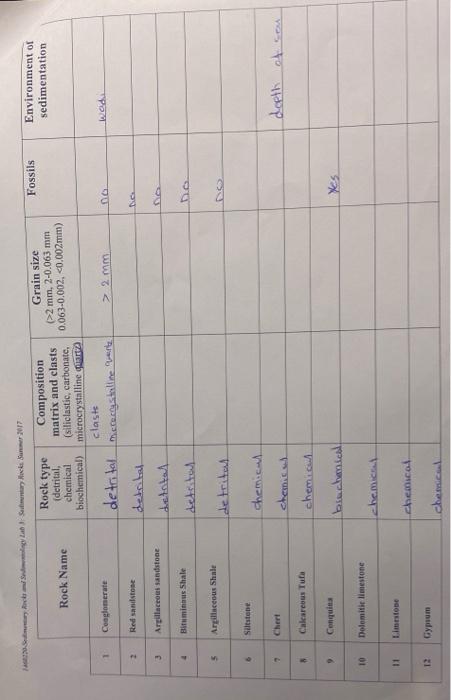 Sedimentary Rocks and Sedimentology Lab 3: Sedimentary Rocks, Summer 2017
Rock Name
Rock type
(detrital,
chemical
biochemical)
Composition
matrix and clasts
(siliclastic, carbonate,
microcrystalline quartz)
Grain size
(>2 mm, 2-0.063 mm
0.063-0.002, <0.002mm)
Fossils
Environment of
sedimentation
1 Conglomerate detrital clasts microcrystalline quartz > 2 mm no wadi
2 Red sandstone detrital no
3 Argillaceous sandstone detrital no
4 Bituminous Shale detrital no
5 Argillaceous Shale detrital no
6 Siltstone chemical
7 Chert chemical depth of sea
8 Calcareous Tufa chemical
9 Conquina biochemical Yes
10 Dolomitic limestone chemical
11 Limestone chemical
12 Gypsum chemical